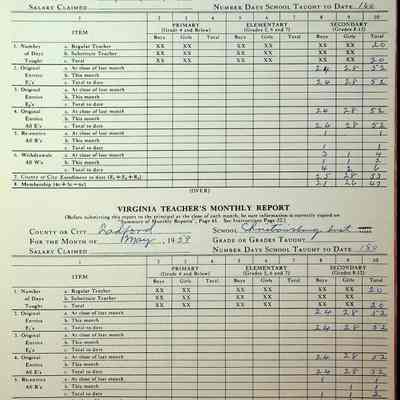 SALARY CLAIMED NUMBER DAYS SCHOOL TAUGHT TO DATE 160
1 2 3 4 5 6 7 8 9 10
ITEM PRIMARY (Grade 4 and Below) ELEMENTARY (Grades 5, 6 and 7) SECONDARY (Grades 8-12)
Boys Girls Total Boys Girls Total Boys Girls Total
1. Number a. Regular Teacher XX XX XX XX XX XX 20
of Days b. Substitute Teacher XX XX XX XX XX XX
Taught c. Total XX XX XX XX XX XX 20
2. Original a. At close of last month 24 28 52
Entries b. This month
E₁'s c. Total to date 24 28 52
3. Original a. At close of last month
Entries b. This month
E₂'s c. Total to date
4. Original a. At close of last month 24 28 52
Entries b. This month
All E's c. Total to date 24 28 52
5. Re-entries a. At close of last month 1 1
All R's b. This month
c. Total to date 1 1
6. Withdrawals a. At close of last month 3 1 4
All W's b. This month 1 1 2
c. Total to date 4 2 6
7. County or City Enrollment to date (E₁+E₂+R₂) 25 28 53
8. Membership (4c+5c-6c) 21 26 47
(OVER)
VIRGINIA TEACHER'S MONTHLY REPORT
(Before submitting this report to the principal at the close of each month, be sure information is correctly copied on
"Summary of Monthly Reports", Page 41. See Instructions Page 32.)
COUNTY OR CITY Radford SCHOOL Christiansburg Inst
FOR THE MONTH OF May, 1959 GRADE OR GRADES TAUGHT
SALARY CLAIMED NUMBER DAYS SCHOOL TAUGHT TO DATE 180
1 2 3 4 5 6 7 8 9 10
ITEM PRIMARY (Grade 4 and Below) ELEMENTARY (Grades 5, 6 and 7) SECONDARY (Grades 8-12)
Boys Girls Total Boys Girls Total Boys Girls Total
1. Number a. Regular Teacher XX XX XX XX XX XX 20
of Days b. Substitute Teacher XX XX XX XX XX XX
Taught c. Total XX XX XX XX XX XX 20
2. Original a. At close of last month 24 28 52
Entries b. This month
E₁'s c. Total to date 24 28 52
3. Original a. At close of last month
Entries b. This month
E₂'s c. Total to date
4. Original a. At close of last month 24 28 52
Entries b. This month
All E's c. Total to date 24 28 52
5. Re-entries a. At close of last month 1 1
All R's b. This month 1 1
c. Total to date 1 1 2